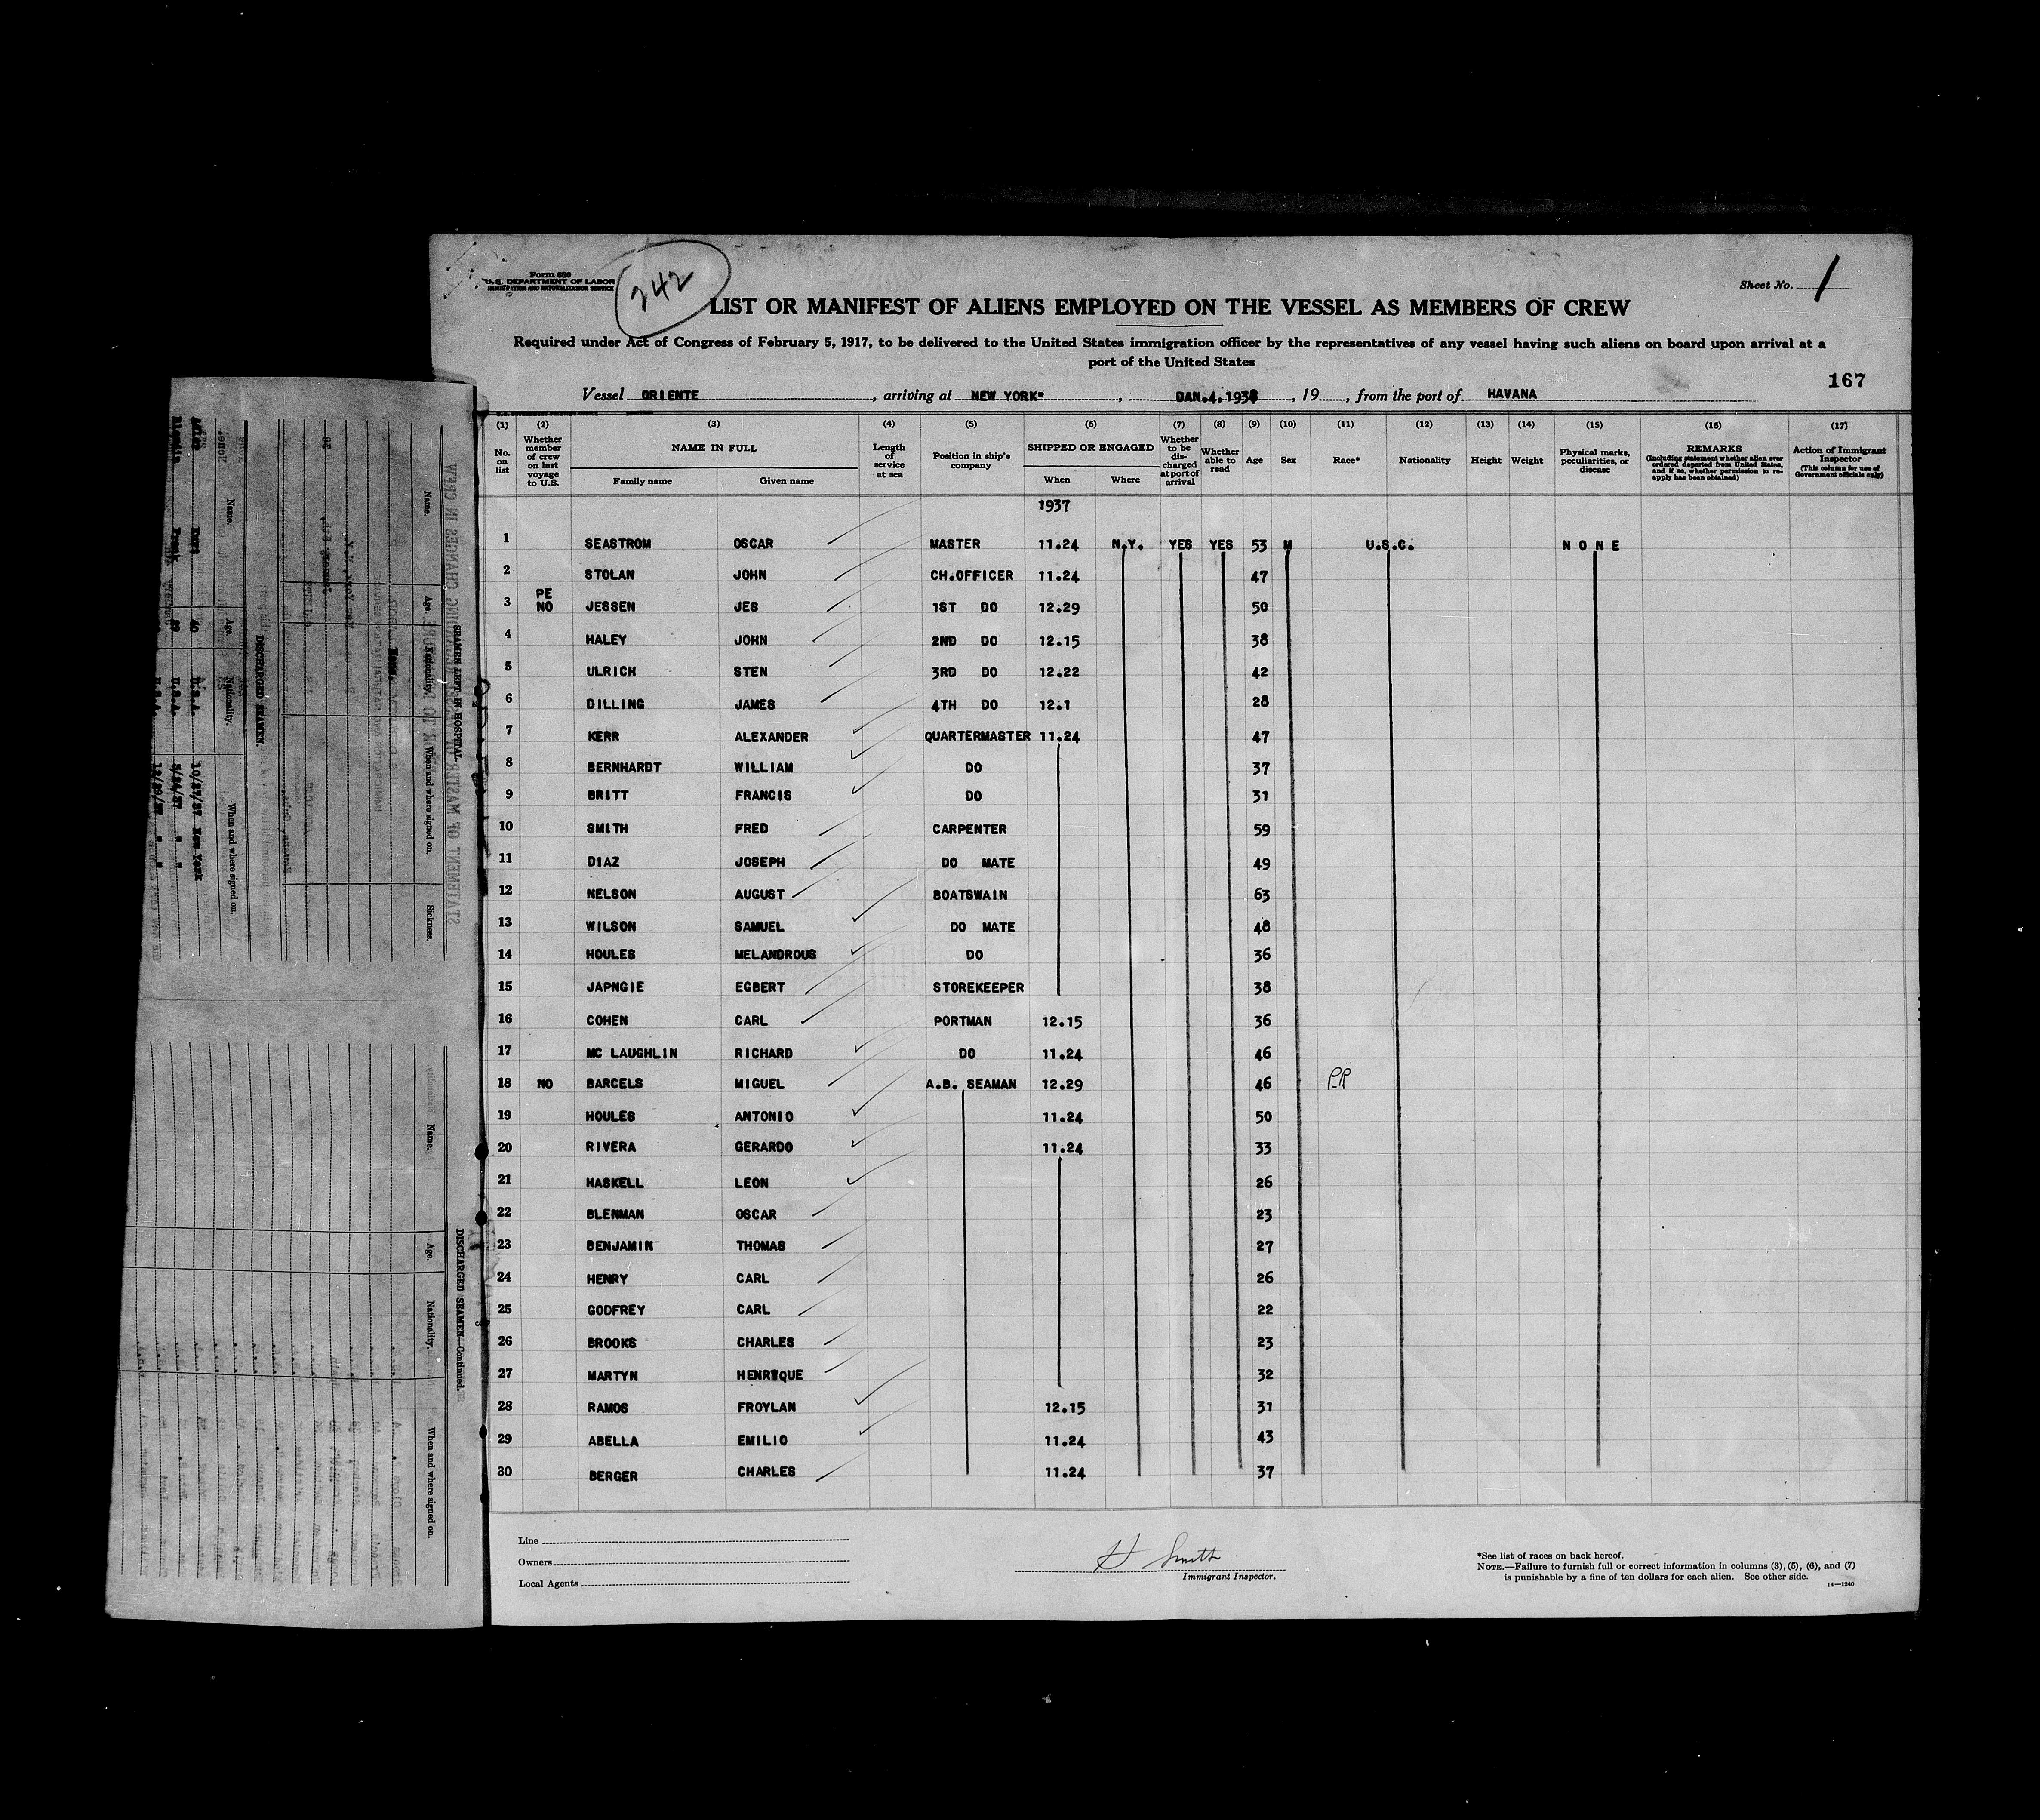 Form 680
U.S. DEPARTMENT OF LABOR
IMMIGRATION AND NATURALIZATION SERVICE
242
Sheet No. 1
LIST OR MANIFEST OF ALIENS EMPLOYED ON THE VESSEL AS MEMBERS OF CREW
Required under Act of Congress of February 5, 1917, to be delivered to the United States immigration officer by the representatives of any vessel having such aliens on board upon arrival at a
port of the United States
167
Vessel ORIENTE, arriving at NEW YORK, JAN.4.1938, 19, from the port of HAVANA
(1) (2) (3) (4) (5) (6) (7) (8) (9) (10) (11) (12) (13) (14) (15) (16) (17)
No. on list
Whether member of crew on last voyage to U.S.
NAME IN FULL
Family name Given name
Length of service at sea
Position in ship's company
SHIPPED OR ENGAGED
When Where
Whether to be discharged at port of arrival
Whether able to read
Age
Sex
Race*
Nationality
Height
Weight
Physical marks, peculiarities, or disease
REMARKS
(Including statement whether alien ever ordered deported from United States, and if so, whether permission to re-apply has been obtained)
Action of Immigrant Inspector
(This column for use of Government officials only)
1937
1 SEASTROM OSCAR MASTER 11.24 N.Y. YES YES 53 M U.S.C. NONE
2 STOLAN JOHN CH.OFFICER 11.24 47
3 PE NO JESSEN JES 1ST DO 12.29 50
4 HALEY JOHN 2ND DO 12.15 38
5 ULRICH STEN 3RD DO 12.22 42
6 DILLING JAMES 4TH DO 12.1 28
7 KERR ALEXANDER QUARTERMASTER 11.24 47
8 BERNHARDT WILLIAM DO 37
9 BRITT FRANCIS DO 31
10 SMITH FRED CARPENTER 59
11 DIAZ JOSEPH DO MATE 49
12 NELSON AUGUST BOATSWAIN 63
13 WILSON SAMUEL DO MATE 48
14 HOULES MELANDROUS DO 36
15 JAPNGIE EGBERT STOREKEEPER 38
16 COHEN CARL PORTMAN 12.15 36
17 MC LAUGHLIN RICHARD DO 11.24 46
18 NO BARCELS MIGUEL A.B. SEAMAN 12.29 46 P.R
19 HOULES ANTONIO 11.24 50
20 RIVERA GERARDO 11.24 33
21 HASKELL LEON 26
22 BLENMAN OSCAR 23
23 BENJAMIN THOMAS 27
24 HENRY CARL 26
25 GODFREY CARL 22
26 BROOKS CHARLES 23
27 MARTYN HENRYQUE 32
28 RAMOS FROYLAN 12.15 31
29 ABELLA EMILIO 11.24 43
30 BERGER CHARLES 11.24 37
Line
Owners
Local Agents
H Smith
Immigrant Inspector.
*See list of races on back hereof.
NOTE.—Failure to furnish full or correct information in columns (3), (5), (6), and (7)
is punishable by a fine of ten dollars for each alien. See other side.
14—1240
SEAMEN LEFT IN HOSPITAL.
Name. Age. Nationality. When and where signed on. Sickness.
DISCHARGED SEAMEN.
Name. Age. Nationality. When and where signed on.
Kurt 40 U.S.A. 10/27/37 New York
Frank 29 U.S.A. 3/24/37 " "
U.S.A. 12/29/37 " "
DISCHARGED SEAMEN—Continued.
Name. Age. Nationality. When and where signed on.